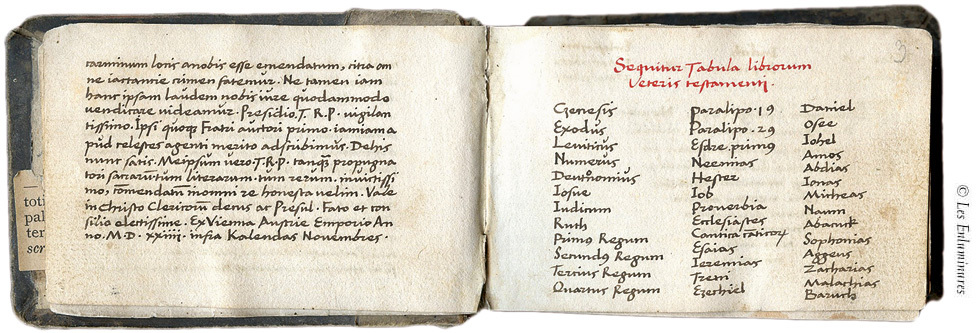 carminum locis a nobis esse emendatum, citra om
ne iactantie crimen fatemur. Ne tamen iam
hanc ipsam laudem nobis iure quodammodo
vendicare videamur. Presidio. T. R. P. vigilan
tissimo. Ipsi quoq; Fratri auctori primo iamiam a
pud celestes agenti merito adscribimus. De his
nunc satis. Meipsum vero. T. R. P. tanq̃ propugna
tori sacrarũm literarum. tum rerum. invictissi
mo, cõmendatũ in omni re honesta velim. Vale
in Christo Clericorũ decus ac Presul. Fato et con
silio electissime. Ex Vienna Austrie Emporio An
no. M. D. xxiiii. infra Kalendas Novembres.
toti
pal
ter
scr
3
Sequitur Tabula librorum
Veteris testamenti.
Genesis
Exodus
Leviticus
Numerus
Deuthomius
Iosue
Iudicum
Ruth
Primus Regum
Secundus Regum
Tercius Regum
Quartus Regum
Paralipo. 19
Paralipo. 29
Esdre. primus
Neemias
Hester
Iob
Proverbia
Ecclesiastes
Cantica cãticorum
Esaias
Ieremias
Treni
Ezechiel
Daniel
Osee
Iohel
Amos
Abdias
Ionas
Micheas
Naum
Abacuck
Sophonias
Aggeus
Zacharias
Malachias
Baruch
© Les Enluminures